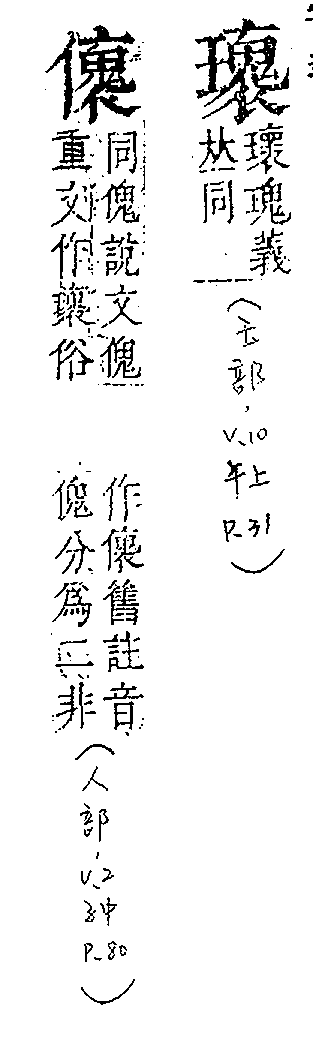 瓌
瓌瑰義
𠀤同
(玉部,
V.10
午上
P.31)
儴
同傀說文傀
重文作瓌俗
作儴舊註音
傀分為二非
(人部,
V.2
子中
P.80)